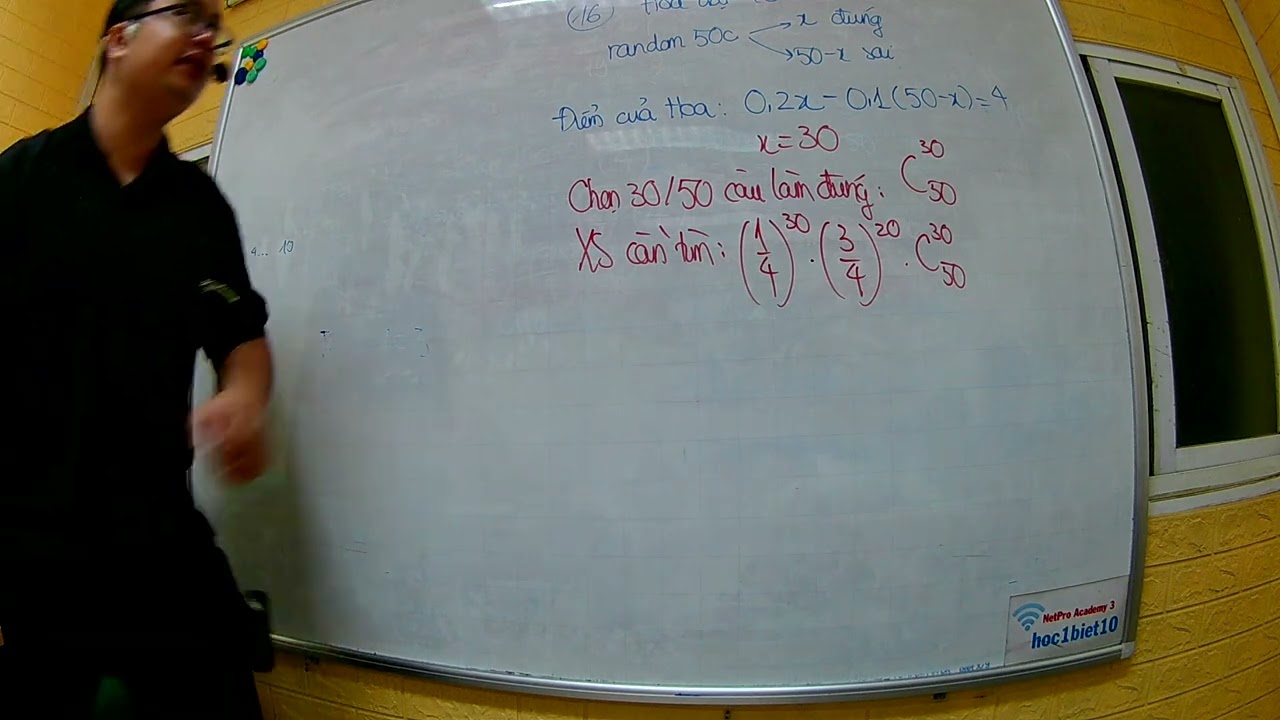 (16) Hoa
random 50c → x đúng
→ 50-x sai
Điểm của Hoa: 0,2x - 0,1(50-x)=4
x=30
Chọn 30/50 câu làm đúng: C³⁰₅₀
XS cần tìm: (1/4)³⁰ . (3/4)²⁰ . C³⁰₅₀
4... 10
NetPro Academy 3
hoc1biet10